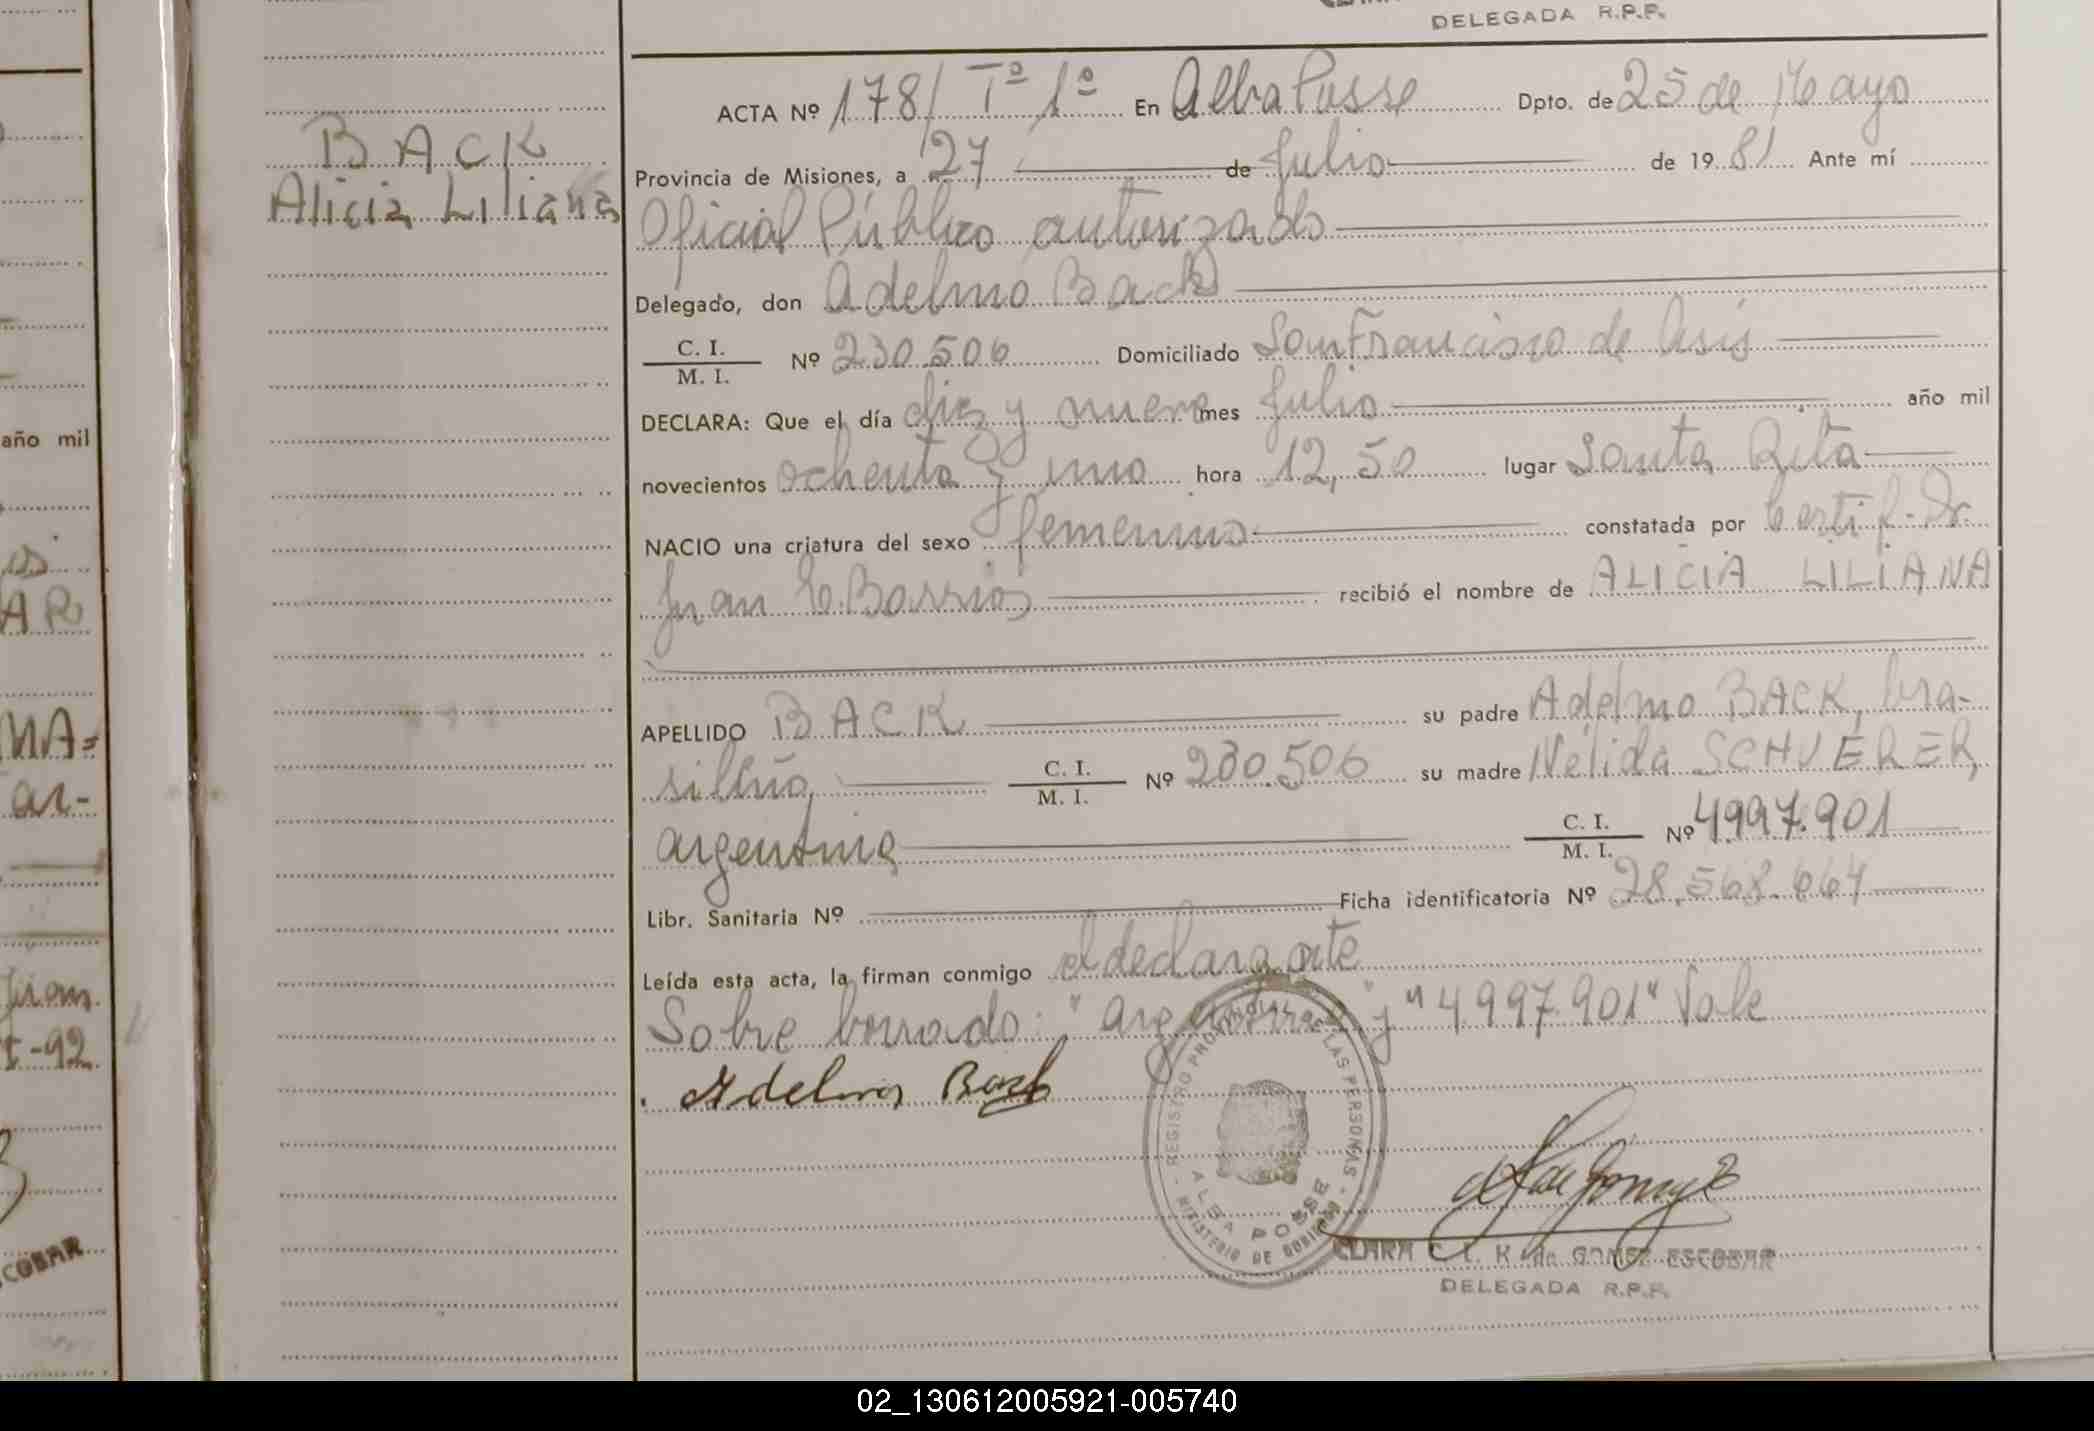 DELEGADA R.P.P.
BACK
Alicia Liliana
ACTA Nº 178/ Tº 1º En Alba Posse Dpto. de 25 de Mayo
Provincia de Misiones, a 27 de Julio de 1981 Ante mí
Oficial Público autorizado
Delegado, don Adelmo Back
C. I.
M. I.
Nº 230.506 Domiciliado San Francisco de Asís
DECLARA: Que el día diez y nueve mes Julio año mil
novecientos ochenta y uno hora 12,50 lugar Santa Rita
NACIO una criatura del sexo femenino constatada por Certif. Dr.
Juan E. Barrios recibió el nombre de ALICIA LILIANA
APELLIDO BACK su padre Adelmo BACK, bra-
sileño, C. I. M. I. Nº 230.506 su madre Nélida SCHVERER,
argentina C. I. M. I. Nº 4.997.901
Libr. Sanitaria Nº Ficha identificatoria Nº 28.568.664
Leída esta acta, la firman conmigo el declarante
Sobre borrado: "argentina" y "4.997.901" Vale
Adelmo Back
REGISTRO PROVINCIAL DE LAS PERSONAS
ALBA POSSE
MINISTERIO DE GOBIERNO
CLARA C. L. K. de GOMEZ ESCOBAR
DELEGADA R.P.P.
año mil
AR
NA=
ar-
-92
COBAR
02_130612005921-005740